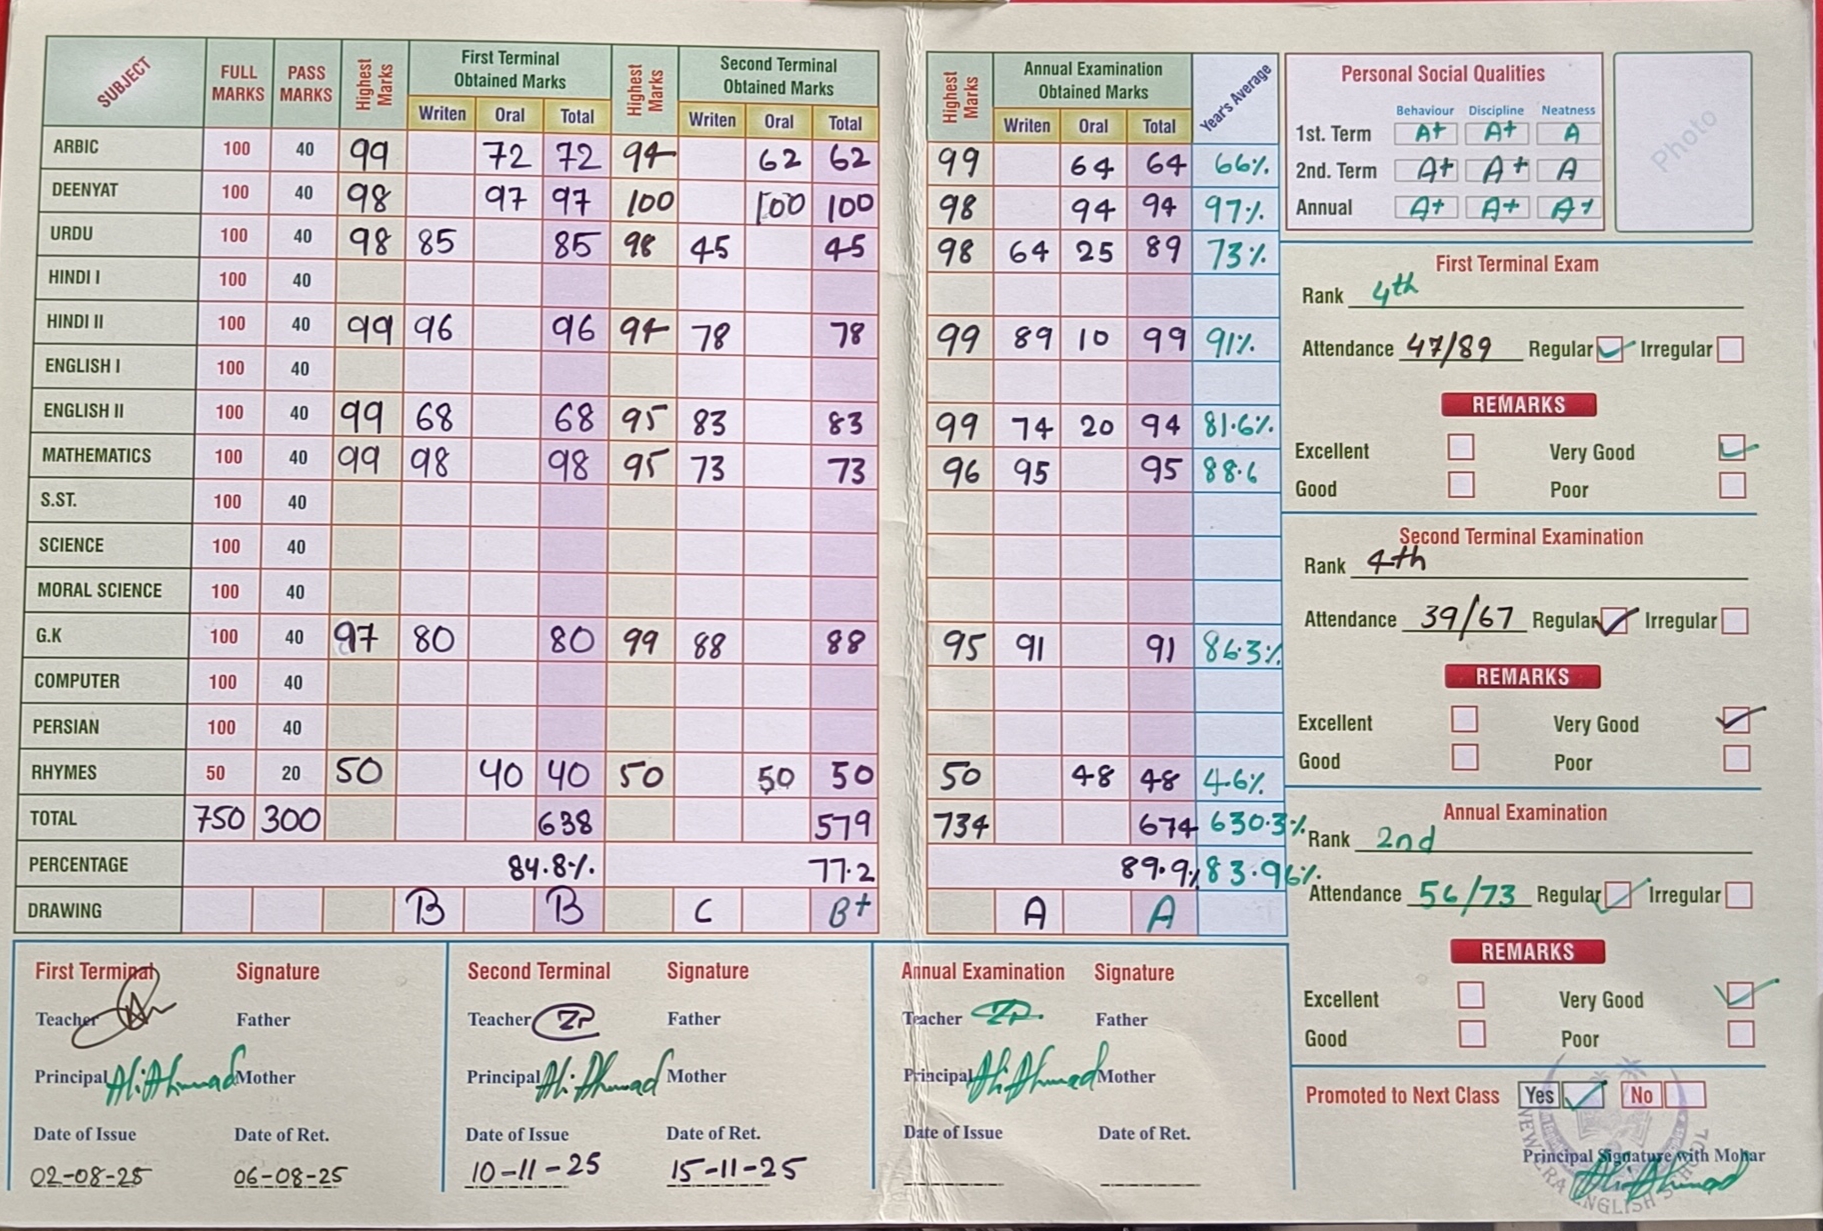 SUBJECT FULL MARKS PASS MARKS Highest Marks First Terminal Obtained Marks Highest Marks Second Terminal Obtained Marks
Writen Oral Total Writen Oral Total
ARBIC 100 40 99 72 72 94 62 62
DEENYAT 100 40 98 97 97 100 100 100
URDU 100 40 98 85 85 98 45 45
HINDI I 100 40
HINDI II 100 40 99 96 96 94 78 78
ENGLISH I 100 40
ENGLISH II 100 40 99 68 68 95 83 83
MATHEMATICS 100 40 99 98 98 95 73 73
S.ST. 100 40
SCIENCE 100 40
MORAL SCIENCE 100 40
G.K 100 40 97 80 80 99 88 88
COMPUTER 100 40
PERSIAN 100 40
RHYMES 50 20 50 40 40 50 50 50
TOTAL 750 300 638 579
PERCENTAGE 84.8% 77.2
DRAWING B B C B+
Highest Marks Annual Examination Obtained Marks Year's Average
Writen Oral Total
99 64 64 66%
98 94 94 97%
98 64 25 89 73%
99 89 10 99 91%
99 74 20 94 81.6%
96 95 95 88.6
95 91 91 86.3%
50 48 48 4.6%
734 674 630.3%
89.9% 83.96%
A A
Personal Social Qualities
Behaviour Discipline Neatness
1st. Term A+ A+ A
2nd. Term A+ A+ A
Annual A+ A+ A+
Photo
First Terminal Exam
Rank 4th
Attendance 47/89 Regular Irregular
REMARKS
Excellent Very Good
Good Poor
Second Terminal Examination
Rank 4th
Attendance 39/67 Regular Irregular
REMARKS
Excellent Very Good
Good Poor
Annual Examination
Rank 2nd
Attendance 56/73 Regular Irregular
REMARKS
Excellent Very Good
Good Poor
Promoted to Next Class Yes No
Principal Signature with Mohar
Ali Ahmad
NEW ERA ENGLISH SCHOOL
First Terminal Signature
Teacher Father
Principal Ali Ahmad Mother
Date of Issue Date of Ret.
02-08-25 06-08-25
Second Terminal Signature
Teacher ZP Father
Principal Ali Ahmad Mother
Date of Issue Date of Ret.
10-11-25 15-11-25
Annual Examination Signature
Teacher ZP Father
Principal Ali Ahmad Mother
Date of Issue Date of Ret.